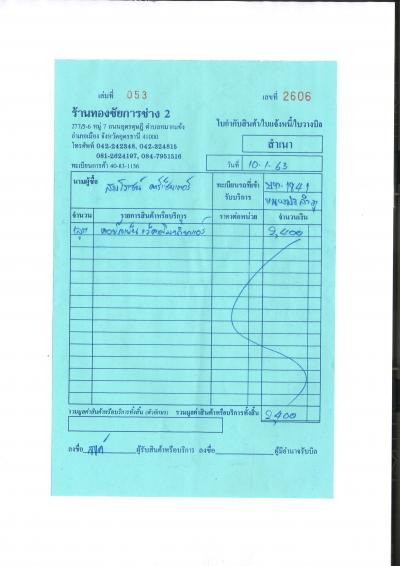 เล่มที่ 053 เลขที่ 2606
ร้านทองชัยการช่าง 2
277/5-6 หมู่ 7 ถนนอุดรดุษฎี ตำบลหมากแข้ง
อำเภอเมือง จังหวัดอุดรธานี 41000
โทรศัพท์ 042-242348, 042-324815
081-2624197, 084-7951516
ทะเบียนการค้า 40-83-1156
ใบกำกับสินค้า/ใบแจ้งหนี้/ใบวางบิล
สำเนา
วันที่ 10-1-63
นามผู้ซื้อ
ทะเบียนรถที่เข้ารับบริการ 1941
จำนวน รายการสินค้าหรือบริการ ราคาต่อหน่วย จำนวนเงิน
2,400
รวมมูลค่าสินค้าหรือบริการทั้งสิ้น (ตัวอักษร) รวมมูลค่าสินค้าหรือบริการทั้งสิ้น 2,400
ลงชื่อ ผู้รับสินค้าหรือบริการ ลงชื่อ ผู้มีอำนาจรับบิล